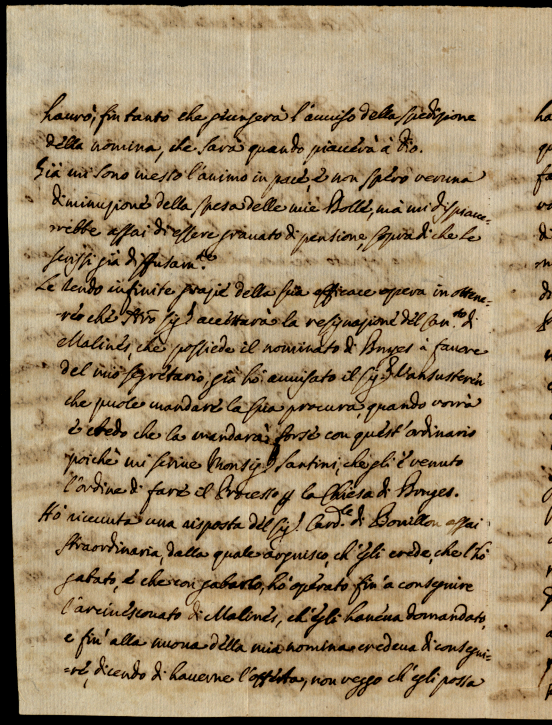 haurò, fin tanto che giungerà l'auuiso della spedizione
della nomina, che sarà quando piacerà à Dio.
Già mi sono messo l'animo in pace, e non spero veruna
diminuzione della spesa delle mie Bolle, mà mi dispiace-
rebbe assai di essere grauato di pensione, sopra di che le
scrissi già diffusam.te
Le rendo infinite grazie della sua efficace opera in ottene-
re che N'ro Sig.re accettarà la resignazione del Can.to di
Malines, che possiede il nominato di Bruges à fauore
del mio segretario, già hò auuisato il Sig.r Vansusteren
che puole mandare la sua procura, quando vorrà
e credo che la mandarà forse con quest'ordinario
poiche mi scriue Monsig.r Santini, che gli è venuto
l'ordine di fare il Processo p la Chiesa di Bruges.
Hò riceuuta una risposta del Sig.r Card.le di Bouillon assai
straordinaria, dalla quale arguisco, ch'egli crede, che l'hò
gabato, e che con gabarlo, hò operato fin'a conseguire
l'arciuescouato di Malines, ch'egli haueua domandato,
e fin'alla nuoua della mia nomina credeua di consegui-
re, dicendo di hauerne l'offerta, non veggo ch'egli possa